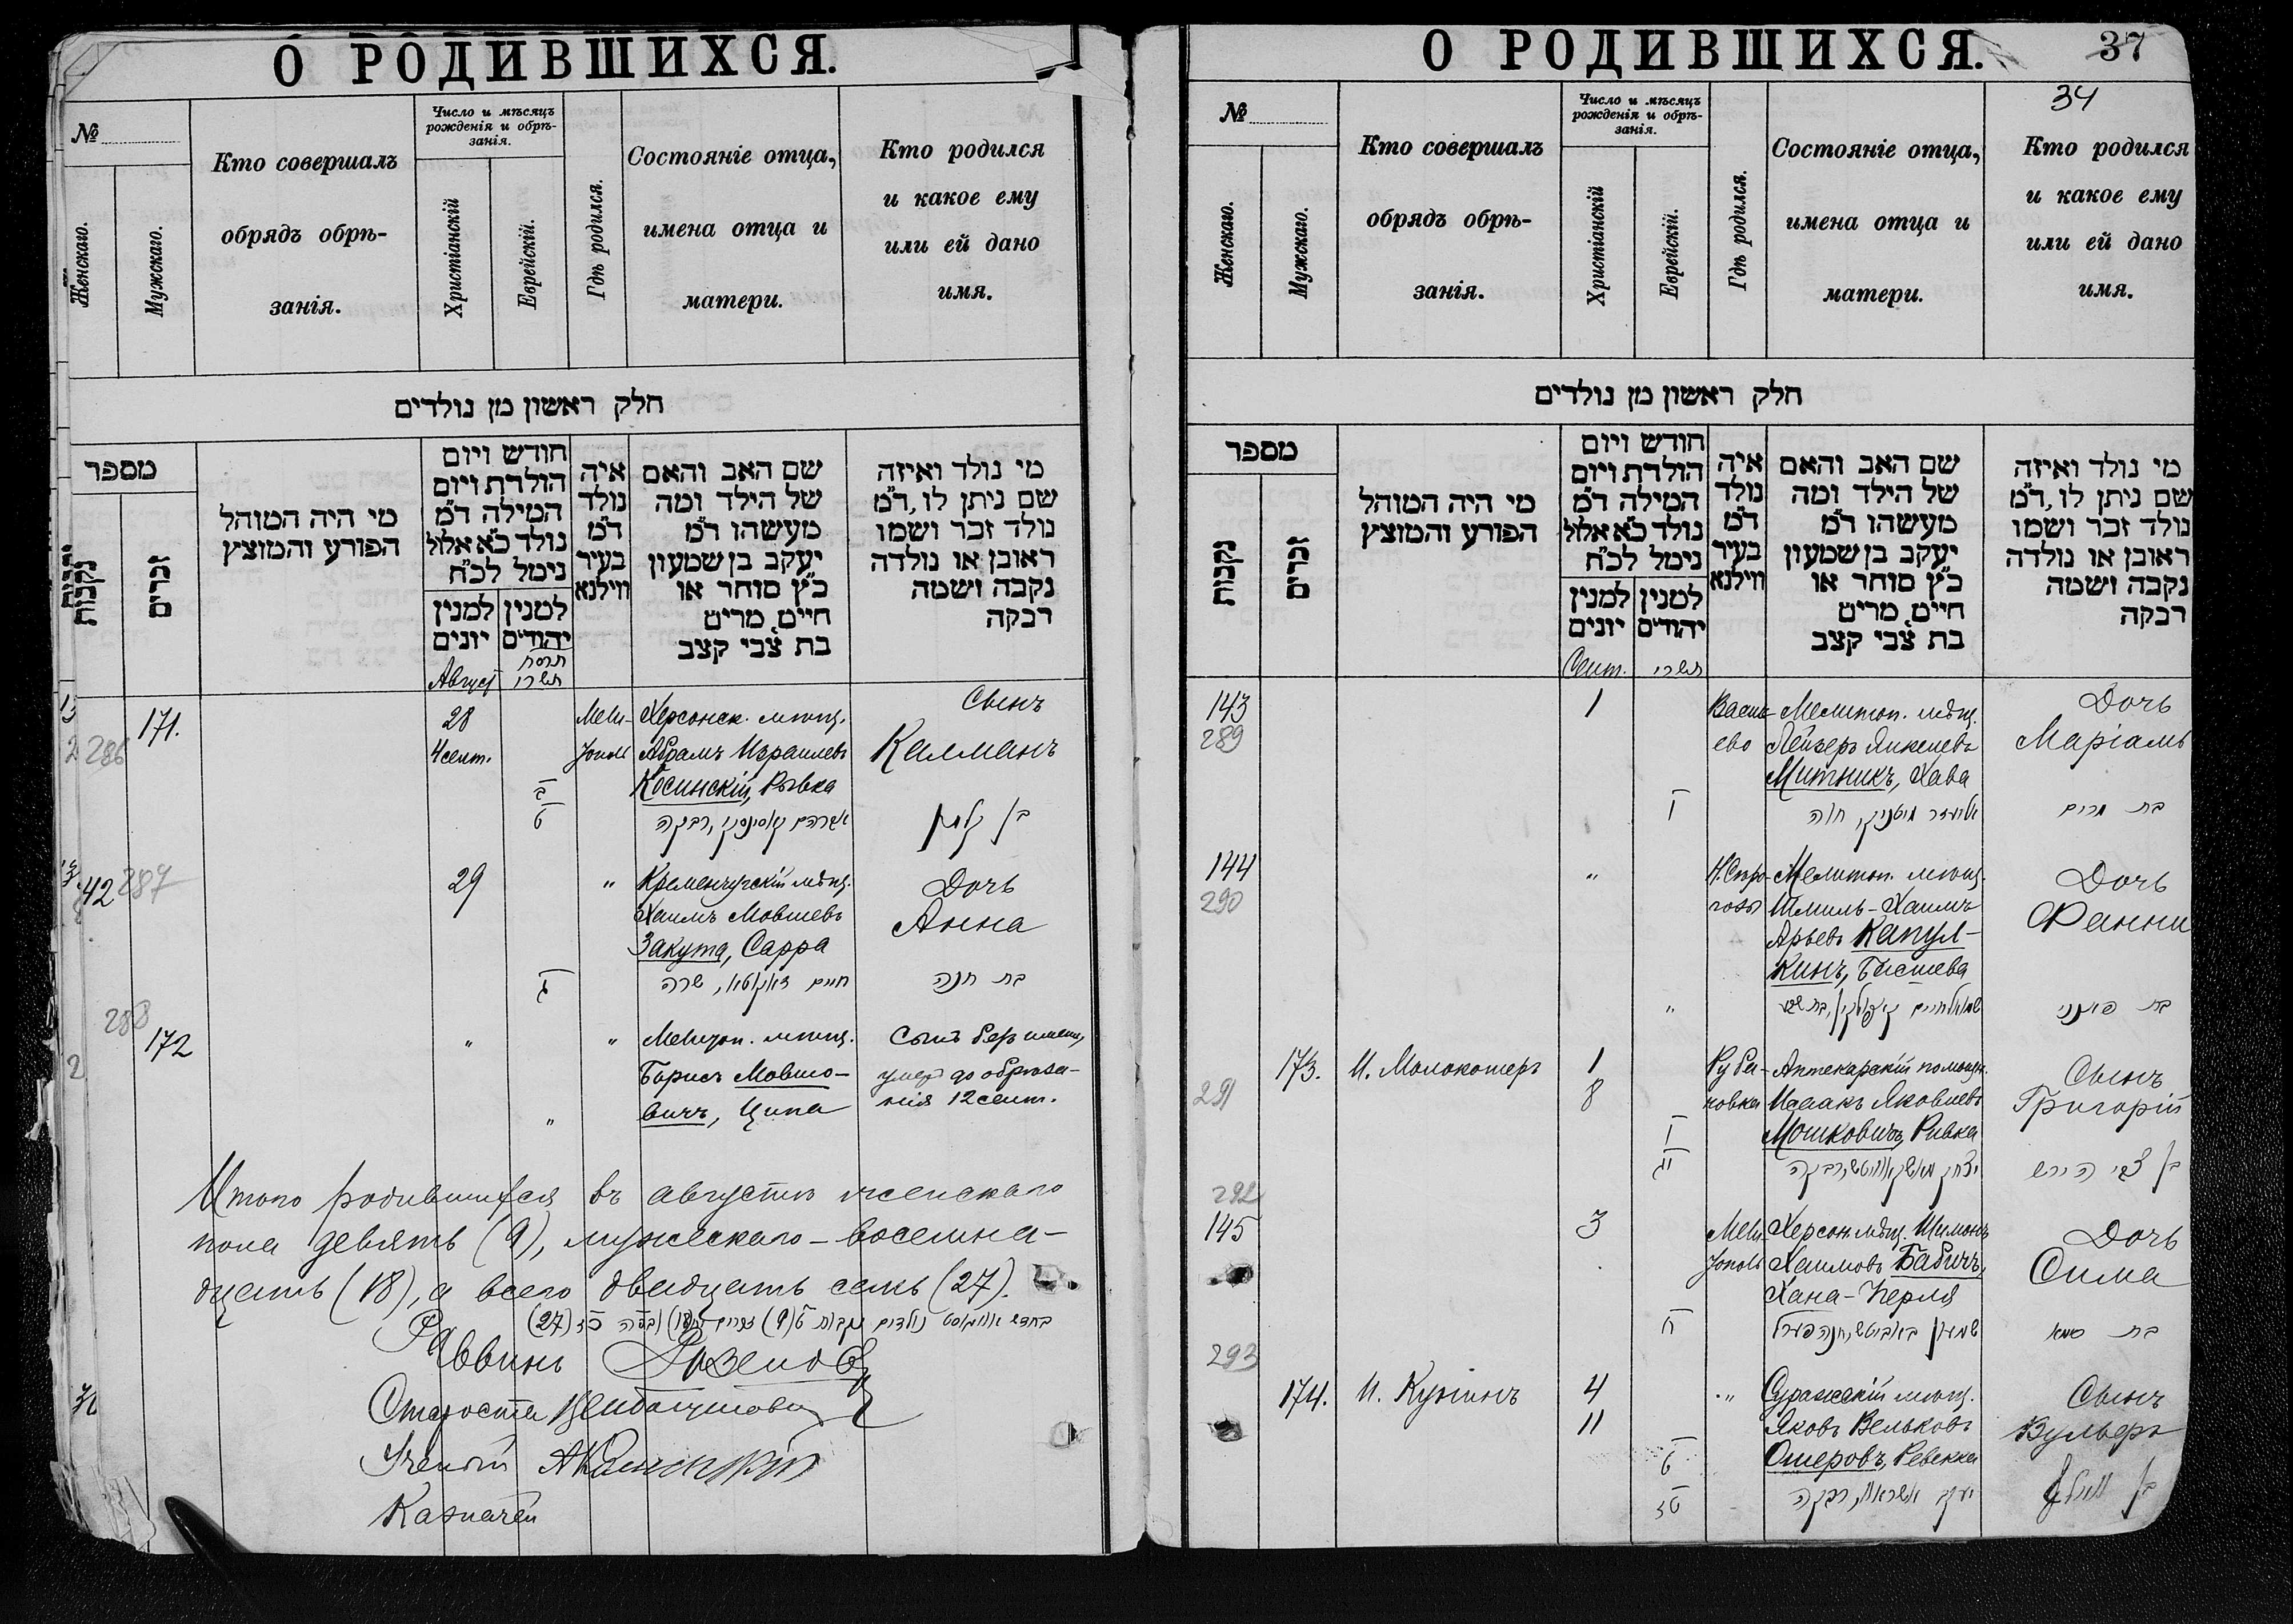 О РОДИВШИХСЯ.
№
Женскаго.
Мужскаго.
Кто совершалъ
обрядъ обрѣ-
занія.
Число и мѣсяцъ
рожденія и обрѣ-
занія.
Христіанскій
Еврейскій.
Гдѣ родился.
Состояніе отца,
имена отца и
матери.
Кто родился
и какое ему
или ей дано
имя.
חלק ראשון מן נולדים
מספר
נקבות
זכרים
מי היה המוהל
הפורע והמוצץ
חודש ויום
הולדת ויום
המילה ד"מ
נולד כ"א אלול
נימל לכ"ח
למנין יונים
למנין יהודים
איה
נולד
ד"מ
בעיר
ווילנא
שם האב והאם
של הילד ומה
מעשהו ד"מ
יעקב בן שמעון
כ"ץ סוחר או
חיים, מרים
בת צבי קצב
מי נולד ואיזה
שם ניתן לו, ד"מ
נולד זכר ושמו
ראובן או נולדה
נקבה ושמה
רבקה
Август
תרסח
תשרי
286
171.
28
4 сент.
ב
ט
Мели-
тополь
Херсонск. мѣщ.
Абрамъ Израилевъ
Косинскій, Рывка
אברהם קאסינסקי, רבקה
Сынъ
Калманъ
בן קלמן
42
287
29
ג
"
Кременчугскій мѣщ.
Хаимъ Мовшевъ
Закута, Сарра
חיים זאקוטא, שרה
Дочь
Анна
בת חנה
288
172
"
"
"
Мелитоп. мѣщ.
Борисъ Мовшо-
вичъ, Ципа
Сынъ безъ имени,
умеръ до обрѣза-
нія 12 сент.
Итого родившихся въ августѣ женскаго
пола девять (9), мужескаго - восемна-
дцать (18), а всего двадцать семь (27).
בחדש אויגוסט נולדים נקבות ט (9) זכרים יח (18) ובסה כז (27)
Раввинъ
Староста
Ученый
Казначей
О РОДИВШИХСЯ.
37
34
№
Женскаго.
Мужскаго.
Кто совершалъ
обрядъ обрѣ-
занія.
Число и мѣсяцъ
рожденія и обрѣ-
занія.
Христіанскій
Еврейскій.
Гдѣ родился.
Состояніе отца,
имена отца и
матери.
Кто родился
и какое ему
или ей дано
имя.
חלק ראשון מן נולדים
מספר
נקבות
זכרים
מי היה המוהל
הפורע והמוצץ
חודש ויום
הולדת ויום
המילה ד"מ
נולד כ"א אלול
נימל לכ"ח
למנין יונים
למנין יהודים
איה
נולד
ד"מ
בעיר
ווילנא
שם האב והאם
של הילד ומה
מעשהו ד"מ
יעקב בן שמעון
כ"ץ סוחר או
חיים, מרים
בת צבי קצב
מי נולד ואיזה
שם ניתן לו, ד"מ
נולד זכר ושמו
ראובן או נולדה
נקבה ושמה
רבקה
Сент.
תשרי
143
289
1
ו
Василь-
ево
Мелитоп. мѣщ.
Лейзеръ Янкелевъ
Митникъ, Хава
אליעזר מיטניק, חוה
Дочь
Маріамъ
בת מרים
144
290
"
"
Н. Серо-
гозы
Мелитоп. мѣщ.
Шмиль-Хаимъ
Арьевъ Капул-
кинъ, Бысшева
שמואל חיים קאפולקין, בת שבע
Дочь
Фанни
בת פייגני
291
173.
И. Молокотеръ
1
8
ו
יג
Рубе-
новка
Аптекарскій помощн.
Исаакъ Яковлевъ
Мошковичъ, Ривка
יצחק מאשקאוויטש, רבקה
Сынъ
Григорій
בן צבי הירש
292
145
3
ח
Мели-
тополь
Херсон. мѣщ. Шимонъ
Хаимовъ Бабичъ,
Хана-Перля
שמעון באביטש, חנה פערל
Дочь
Сима
בת סימא
293
174.
И. Купинъ
4
11
ט
טז
"
Суражскій мѣщ.
Яковъ Вельковъ
Ошеровъ, Ревекка
יעקב אשראוו, רבקה
Сынъ
Вульфъ
בן וואלף